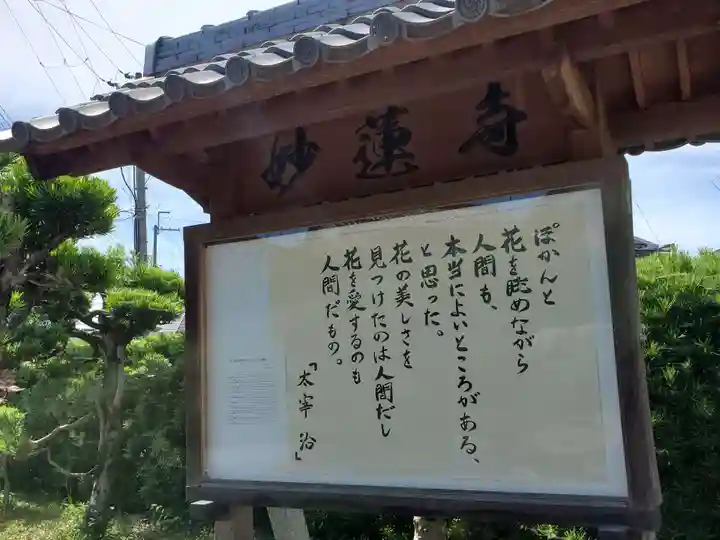 妙蓮寺
ぽかんと
花を眺めながら
人間も、
本当によいところがある、
と思った。
花の美しさを
見つけたのは人間だし
花を愛するのも
人間だもの。
「太宰治」